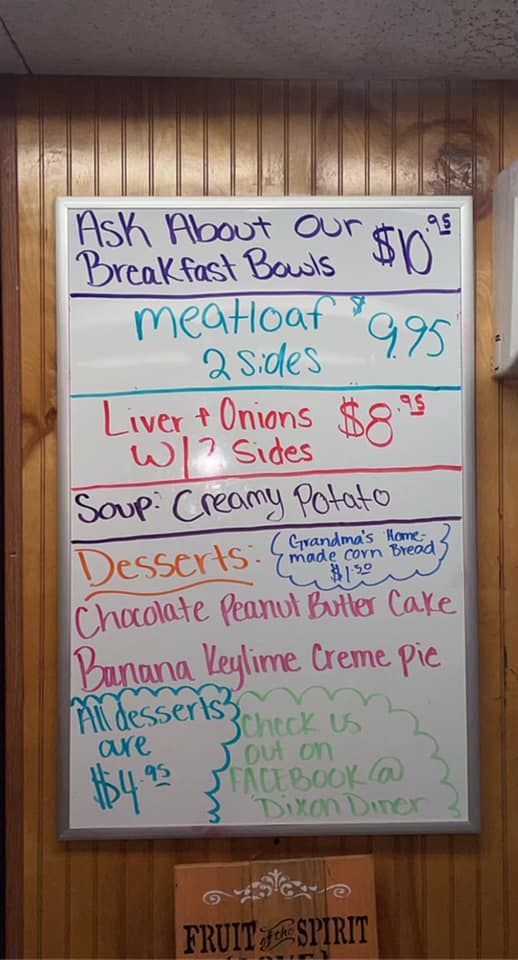 Ask About our $10.95
Breakfast Bowls
meatloaf $9.95
2 sides
Liver + Onions $8.95
W/2 Sides
Soup: Creamy Potato
Desserts:
Grandma's Home-
made corn Bread
$1.50
Chocolate Peanut Butter Cake
Banana Keylime Creme pie
All desserts
are
$4.95
Check us
out on
FACEBOOK @
Dixon Diner
FRUIT of the SPIRIT